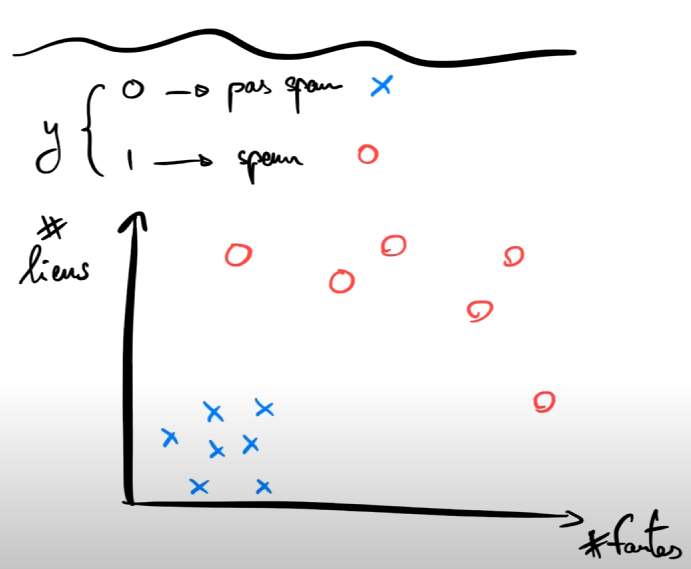 y { 0 → pas spam ×
1 → spam o
# liens
# fautes